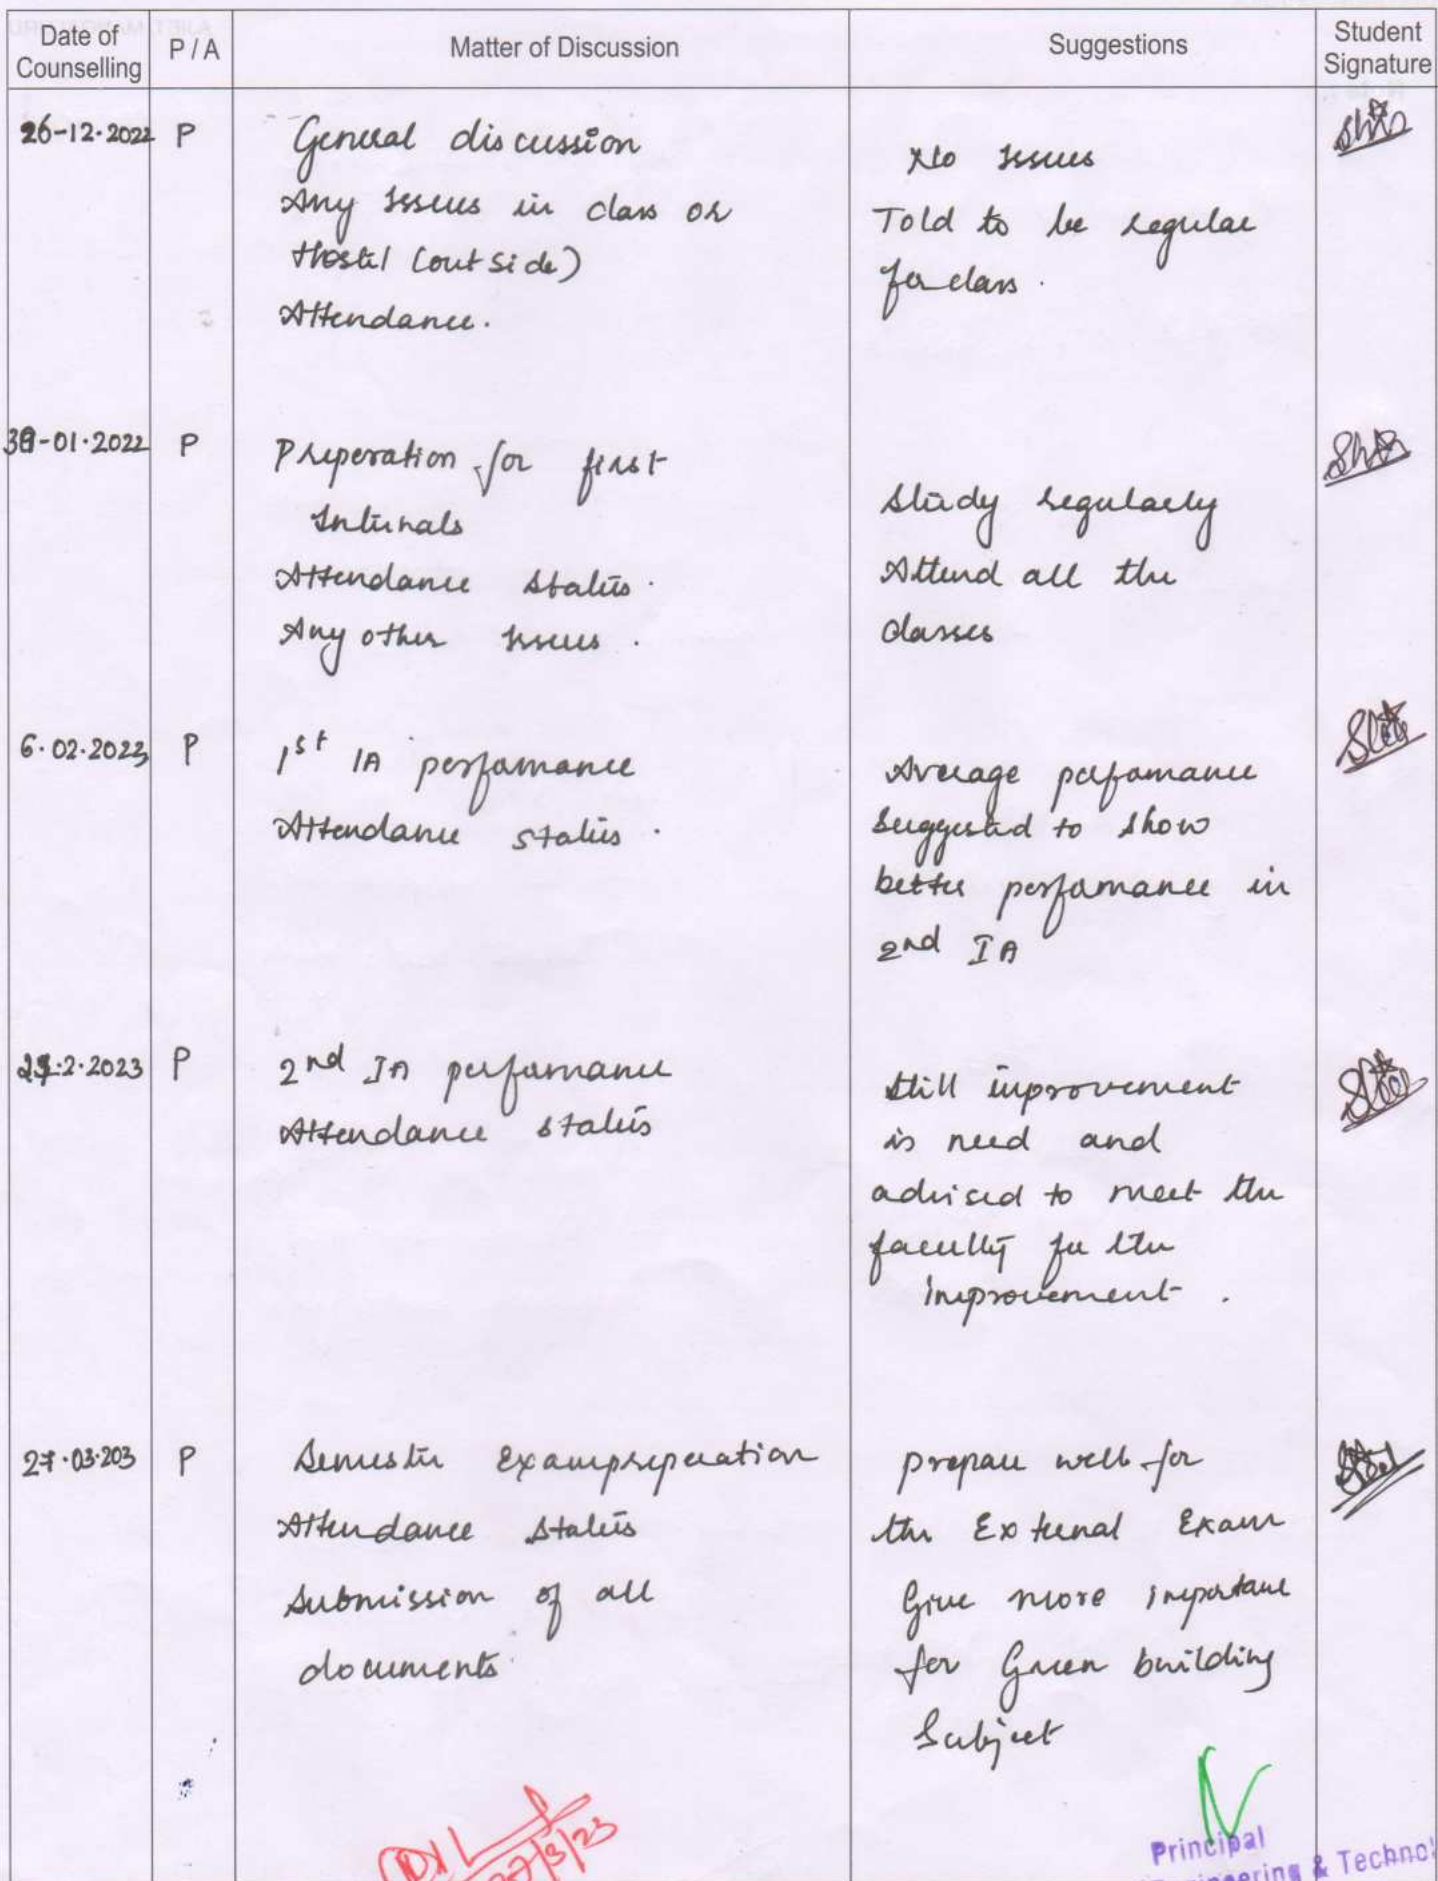 Date of Counselling P / A Matter of Discussion Suggestions Student Signature
26-12-2022 P General discussion
Any Issues in class or
Hostel (outside)
Attendance.
No Issues
Told to be regular
for class.
-01-2022 P Preperation for first
Internals
Attendance status.
Any other Issues.
Study regularly
Attend all the
classes
6.02.2023 P 1st IA perfomance
Attendance status.
Average perfomance
Suggested to show
better perfomance in
2nd IA
.2.2023 P 2nd IA perfomance
Attendance status
Still improvement
is need and
advised to meet the
faculty for the
improvement.
27.03.203 P Semester Exampreperation
Attendance status
Submission of all
documents.
prepare well for
the External Exam
Give more importance
for Green building
Subject
27/3/23
Principal
& Technol